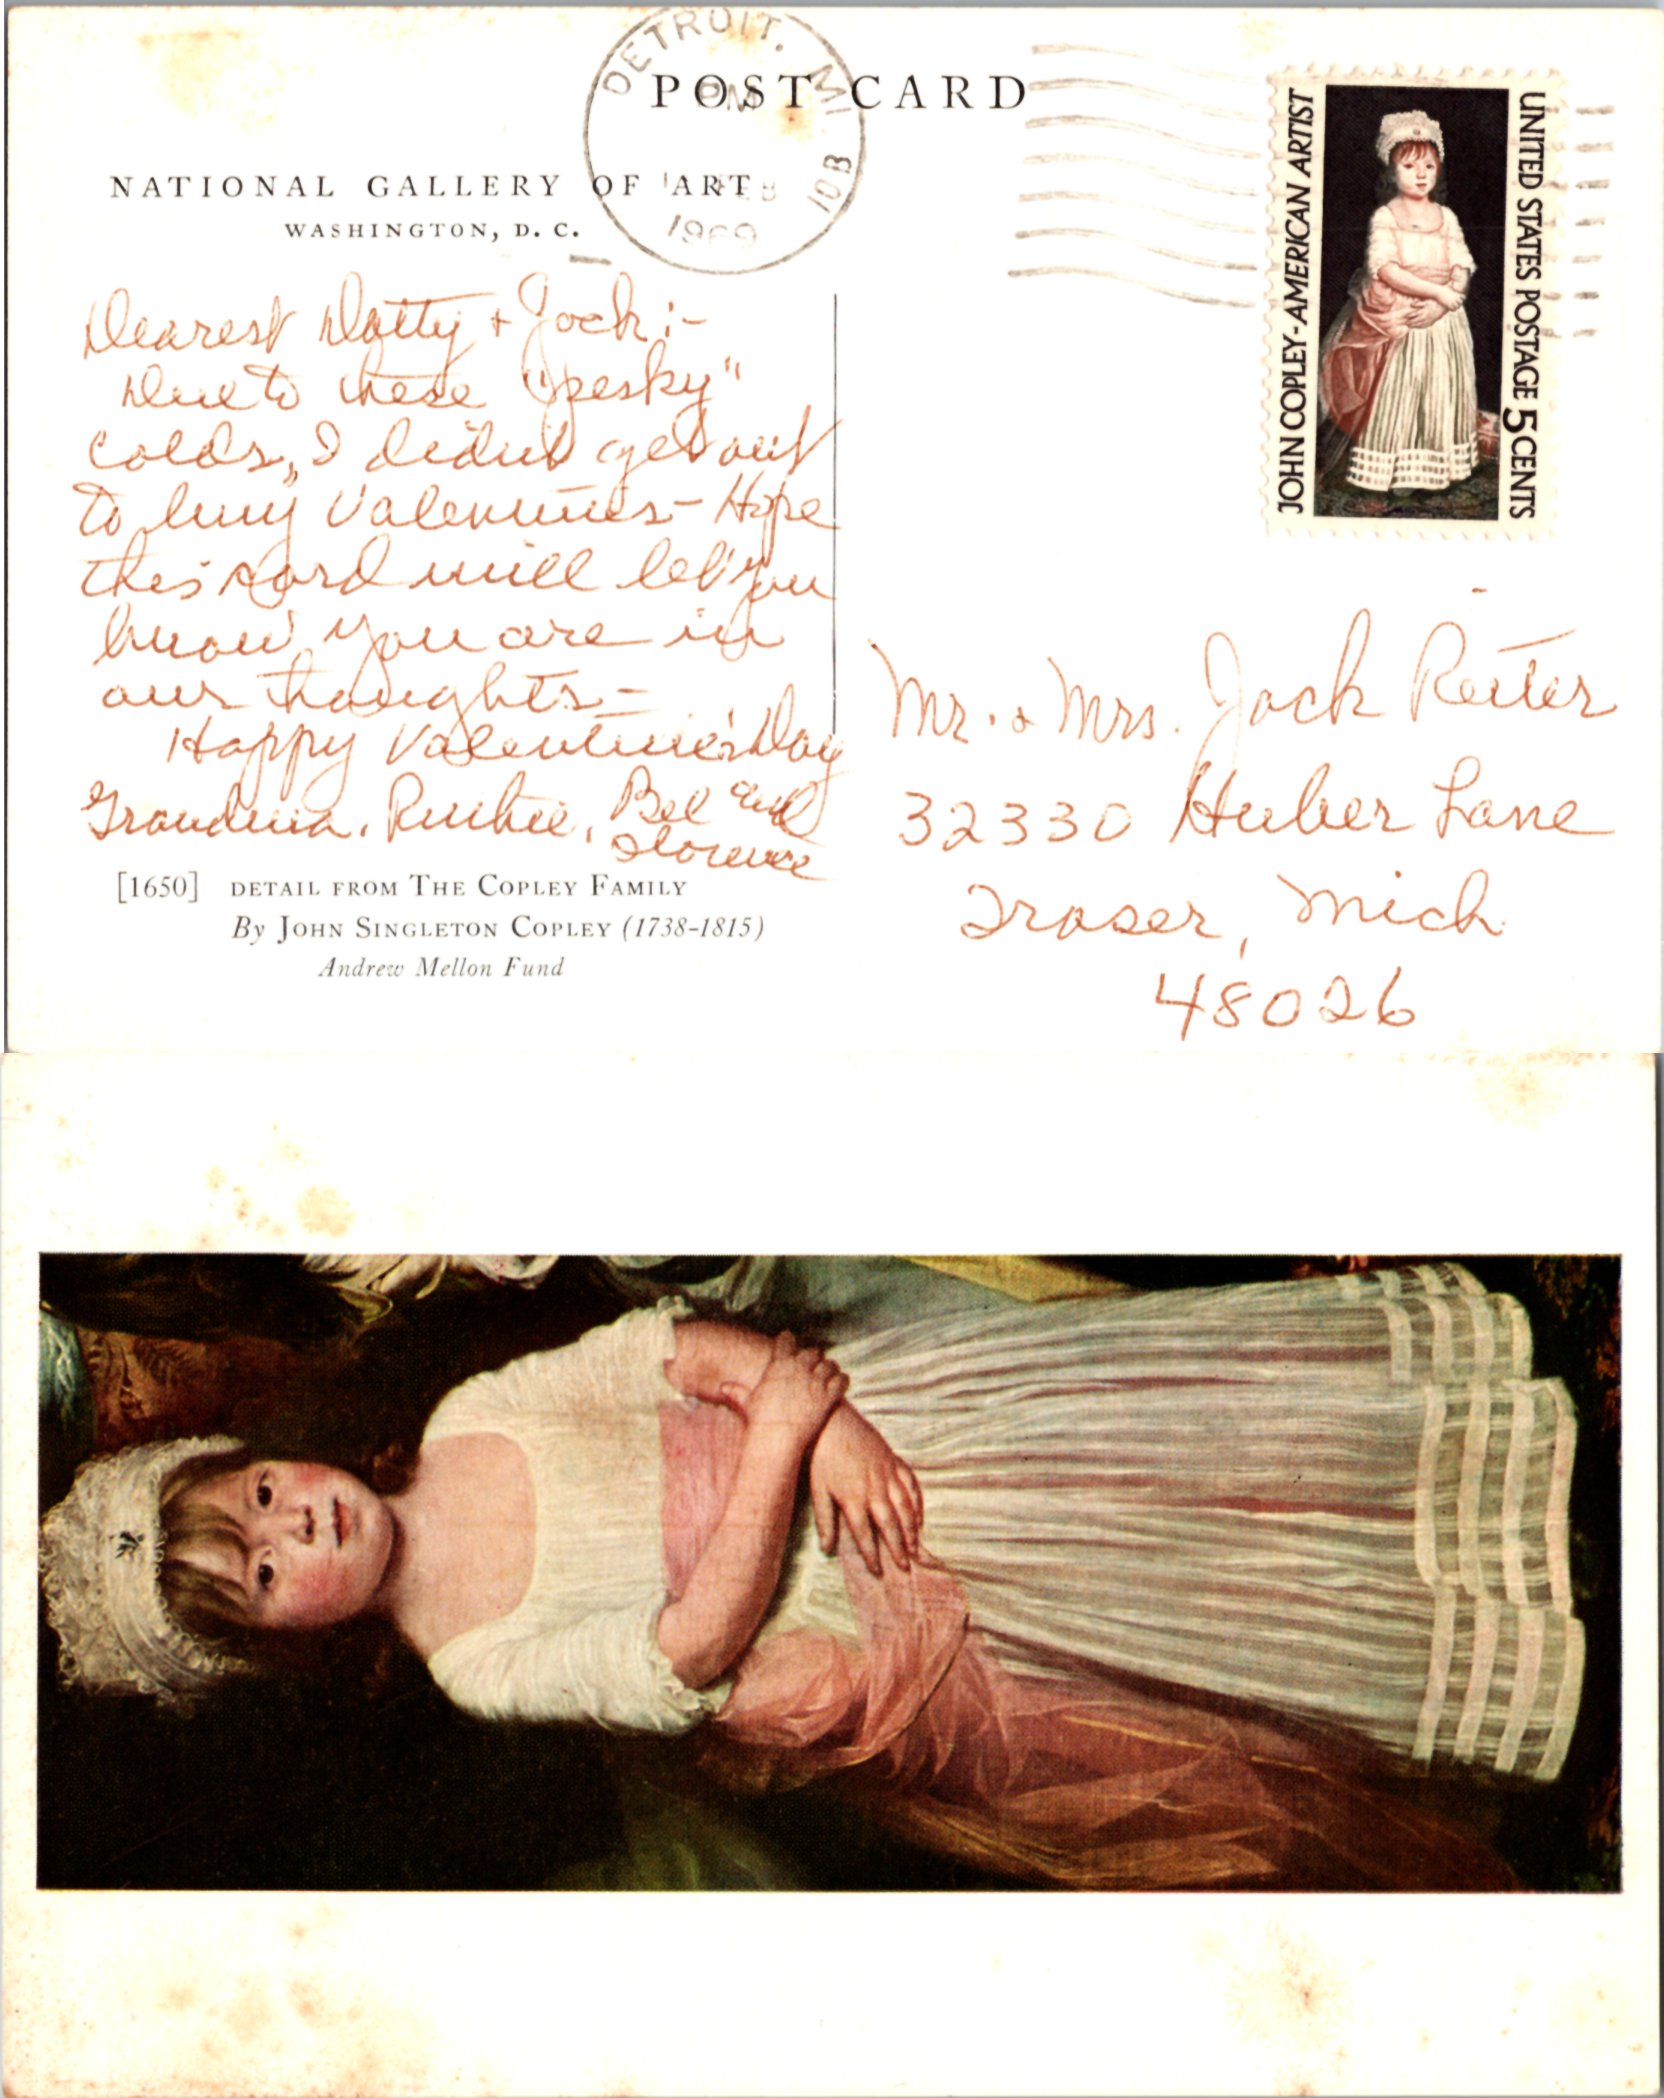 POST CARD
DETROIT, MI
PM
FEB
1969
10B
NATIONAL GALLERY OF ART
WASHINGTON, D. C.
JOHN COPLEY-AMERICAN ARTIST
UNITED STATES POSTAGE 5 CENTS
Dearest Dotty & Jack:-
Due to these "pesky"
colds, I didn't get out
to buy Valentines - Hope
this card will let you
know you are in
our thoughts -
Happy Valentine's Day
Grandma, and
Florence
Mr. & Mrs. Jack Reiter
32330 Huber Lane
Fraser, Mich
48026
[1650] DETAIL FROM THE COPLEY FAMILY
By JOHN SINGLETON COPLEY (1738-1815)
Andrew Mellon Fund